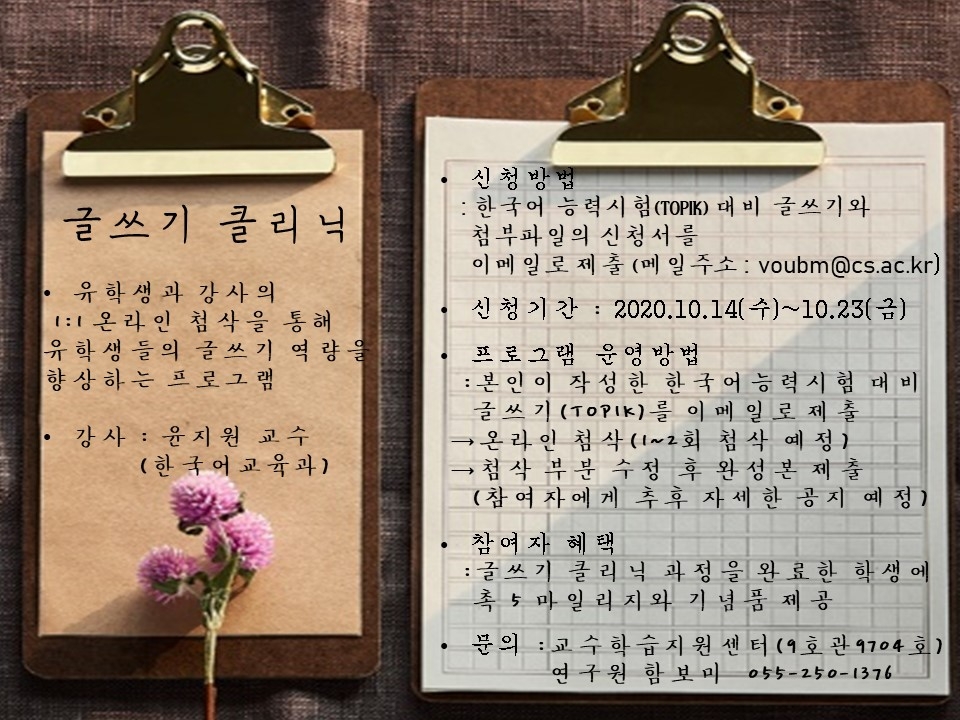 글쓰기 클리닉
• 유학생과 강사의
1:1 온라인 첨삭을 통해
유학생들의 글쓰기 역량을
향상하는 프로그램
• 강사 : 윤지원 교수
(한국어교육과)
• 신청방법
: 한국어 능력시험(TOPIK) 대비 글쓰기와
첨부파일의 신청서를
이메일로 제출 (메일주소 : voubm@cs.ac.kr)
• 신청기간 : 2020.10.14(수)~10.23(금)
• 프로그램 운영방법
: 본인이 작성한 한국어능력시험 대비
글쓰기(TOPIK)를 이메일로 제출
→ 온라인 첨삭(1~2회 첨삭 예정)
→ 첨삭 부분 수정 후 완성본 제출
(참여자에게 추후 자세한 공지 예정)
• 참여자 혜택
: 글쓰기 클리닉 과정을 완료한 학생에
촉 5 마일리지와 기념품 제공
• 문의 : 교수학습지원센터(9호관 9704호)
연구원 함보미 055-250-1376